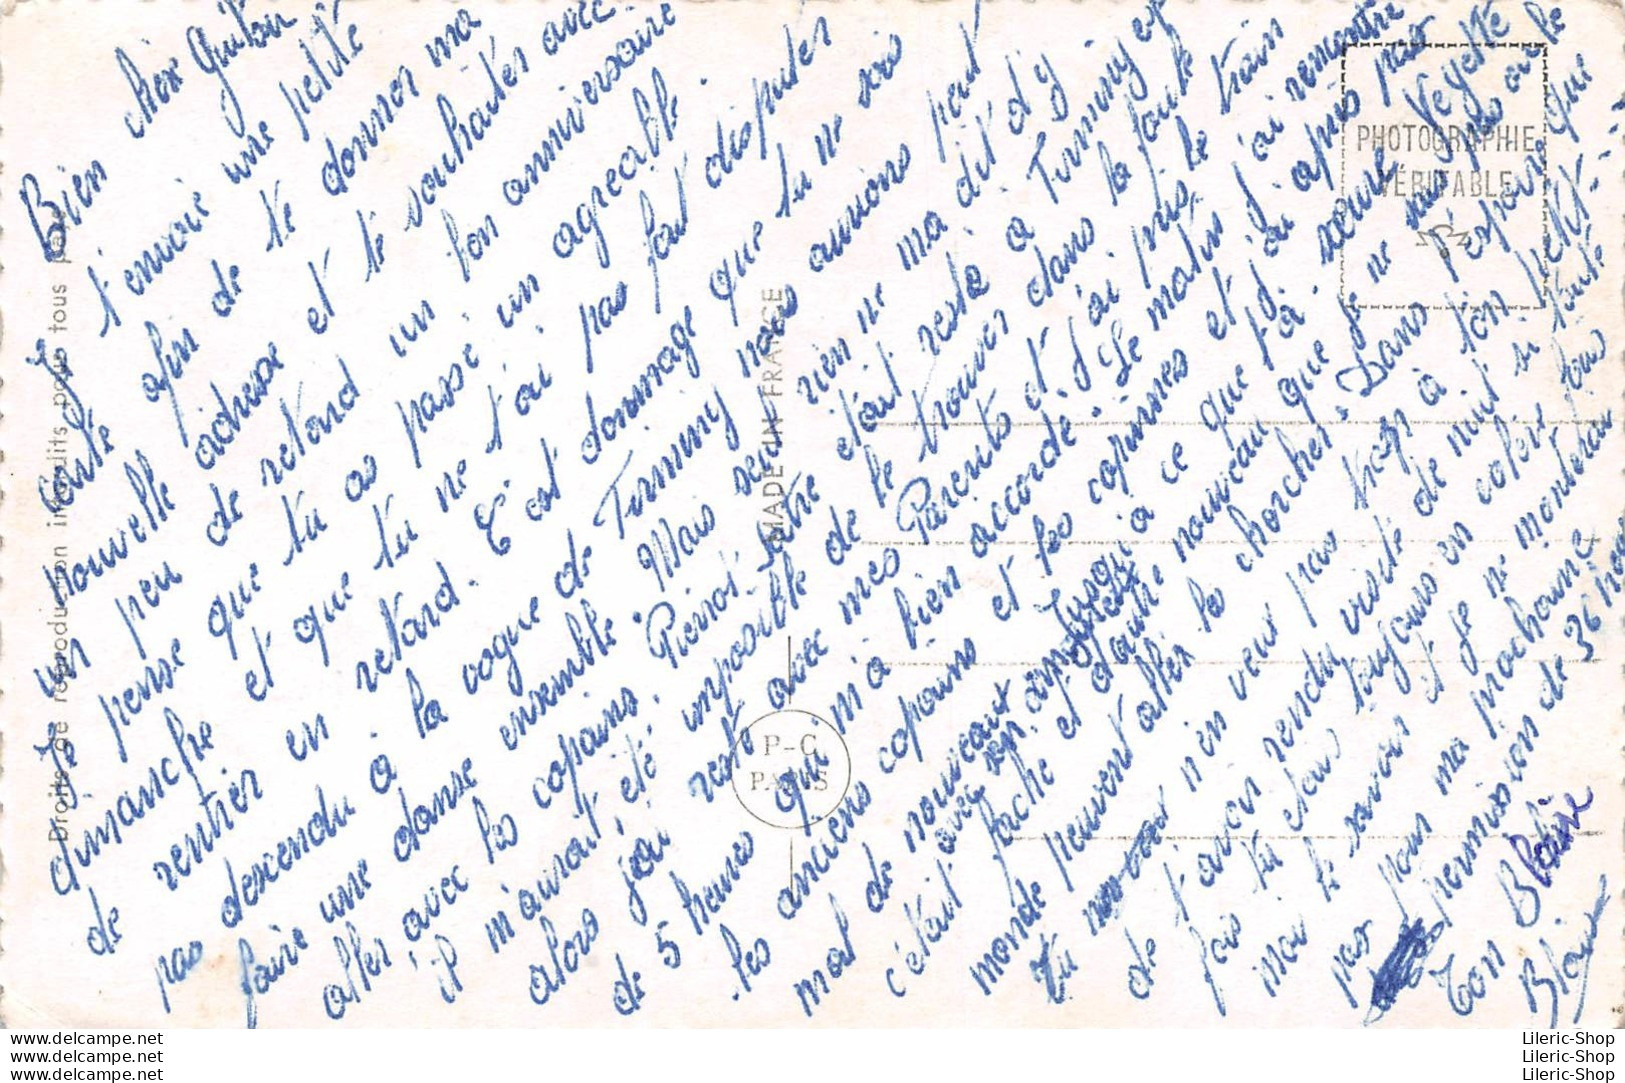 Bien chère Guitou
Je t'envoie une petite
carte afin de te donner ma
nouvelle adresse et te souhaites avec
un peu de retard un bon anniversaire
Je pense que tu as passé un agreable
dimanche et que tu ne t'ai pas fait disputer
de rentrer en retard. C'est dommage que tu ne sois
pas descendu à la vogue de Firminy nous aurions peut
faire une danse ensemble. Mais rien ne ma dit d'y
aller avec les copains. Pierrot était resté à Firminy et
il m'aurait été impossible de le trouver dans la foule
alors j'ai resté avec mes Parents et j'ai pris le train
de 5 heures qui m'a bien accordé. Le matin j'ai remonté
les anciens copains et les copines et j'ai apris pas
mal de nouveaux Jusqu'à ce que ta soeur Yeyette
c'était avec
fache et d'autre nouveau que je ne sais pas ou le
monde peuvent aller les chercher. Dans l'espoir que
Tu n'en veux pas trop à ton
de t'avoir rendu visite de nuit si toute
fois tu etais toujours en colère fais
moi le savoir et je ne monterai
pas pour ma prochaine
permission de 36
Ton Blaise
Blaise
PHOTOGRAPHIE
VÉRITABLE
MADE IN FRANCE
P-C
PARIS
Droits de reproduction interdits pour tous pays
Lileric-Shop.com
Lileric-Shop.com
Lileric-Shop.com
Lileric-Shop
Lileric-Shop
Lileric-Shop